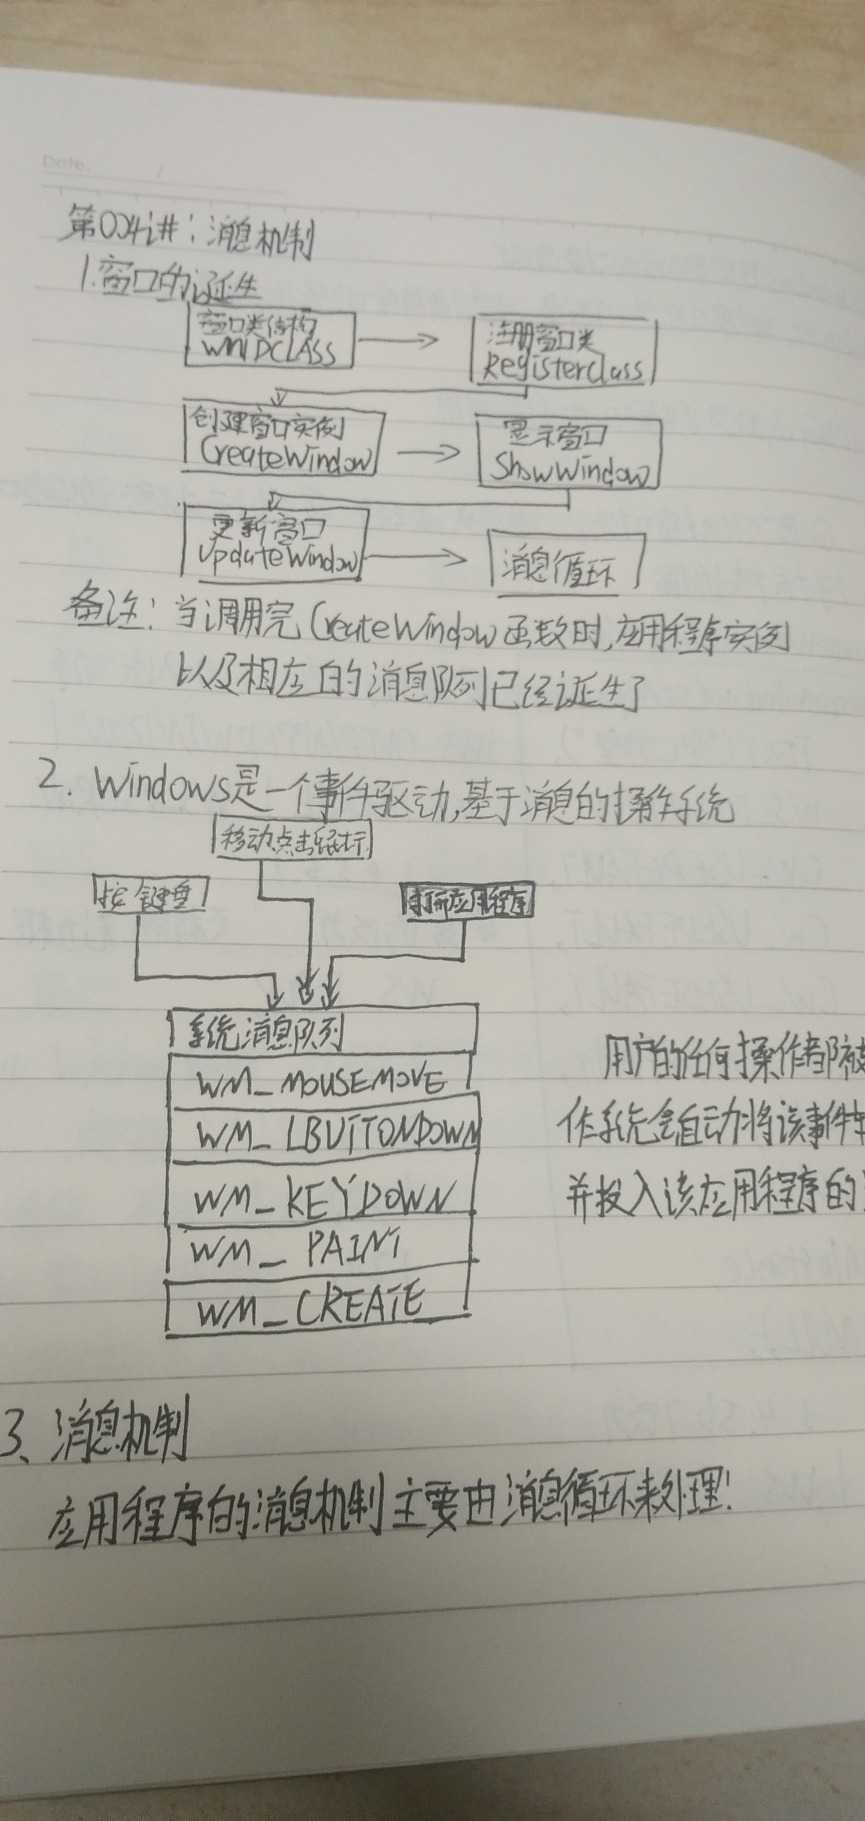 Date.
第004讲：消息机制
1.窗口的诞生
窗口类结构
WNDCLASS
注册窗口类
RegisterClass
创建窗口实例
CreateWindow
显示窗口
ShowWindow
更新窗口
UpdateWindow
消息循环
备注：当调用完CreateWindow函数时,应用程序实例
以及相应的消息队列已经诞生了
2. Windows是一个事件驱动,基于消息的操作系统
移动点击鼠标
按键盘
打开应用程序
系统消息队列
WM_MOUSEMOVE
WM_LBUTTONDOWN
WM_KEYDOWN
WM_PAINT
WM_CREATE
用户的任何操作都被
作系统会自动将该事件
并投入该应用程序的
3、消息机制
应用程序的消息机制主要由消息循环来处理!